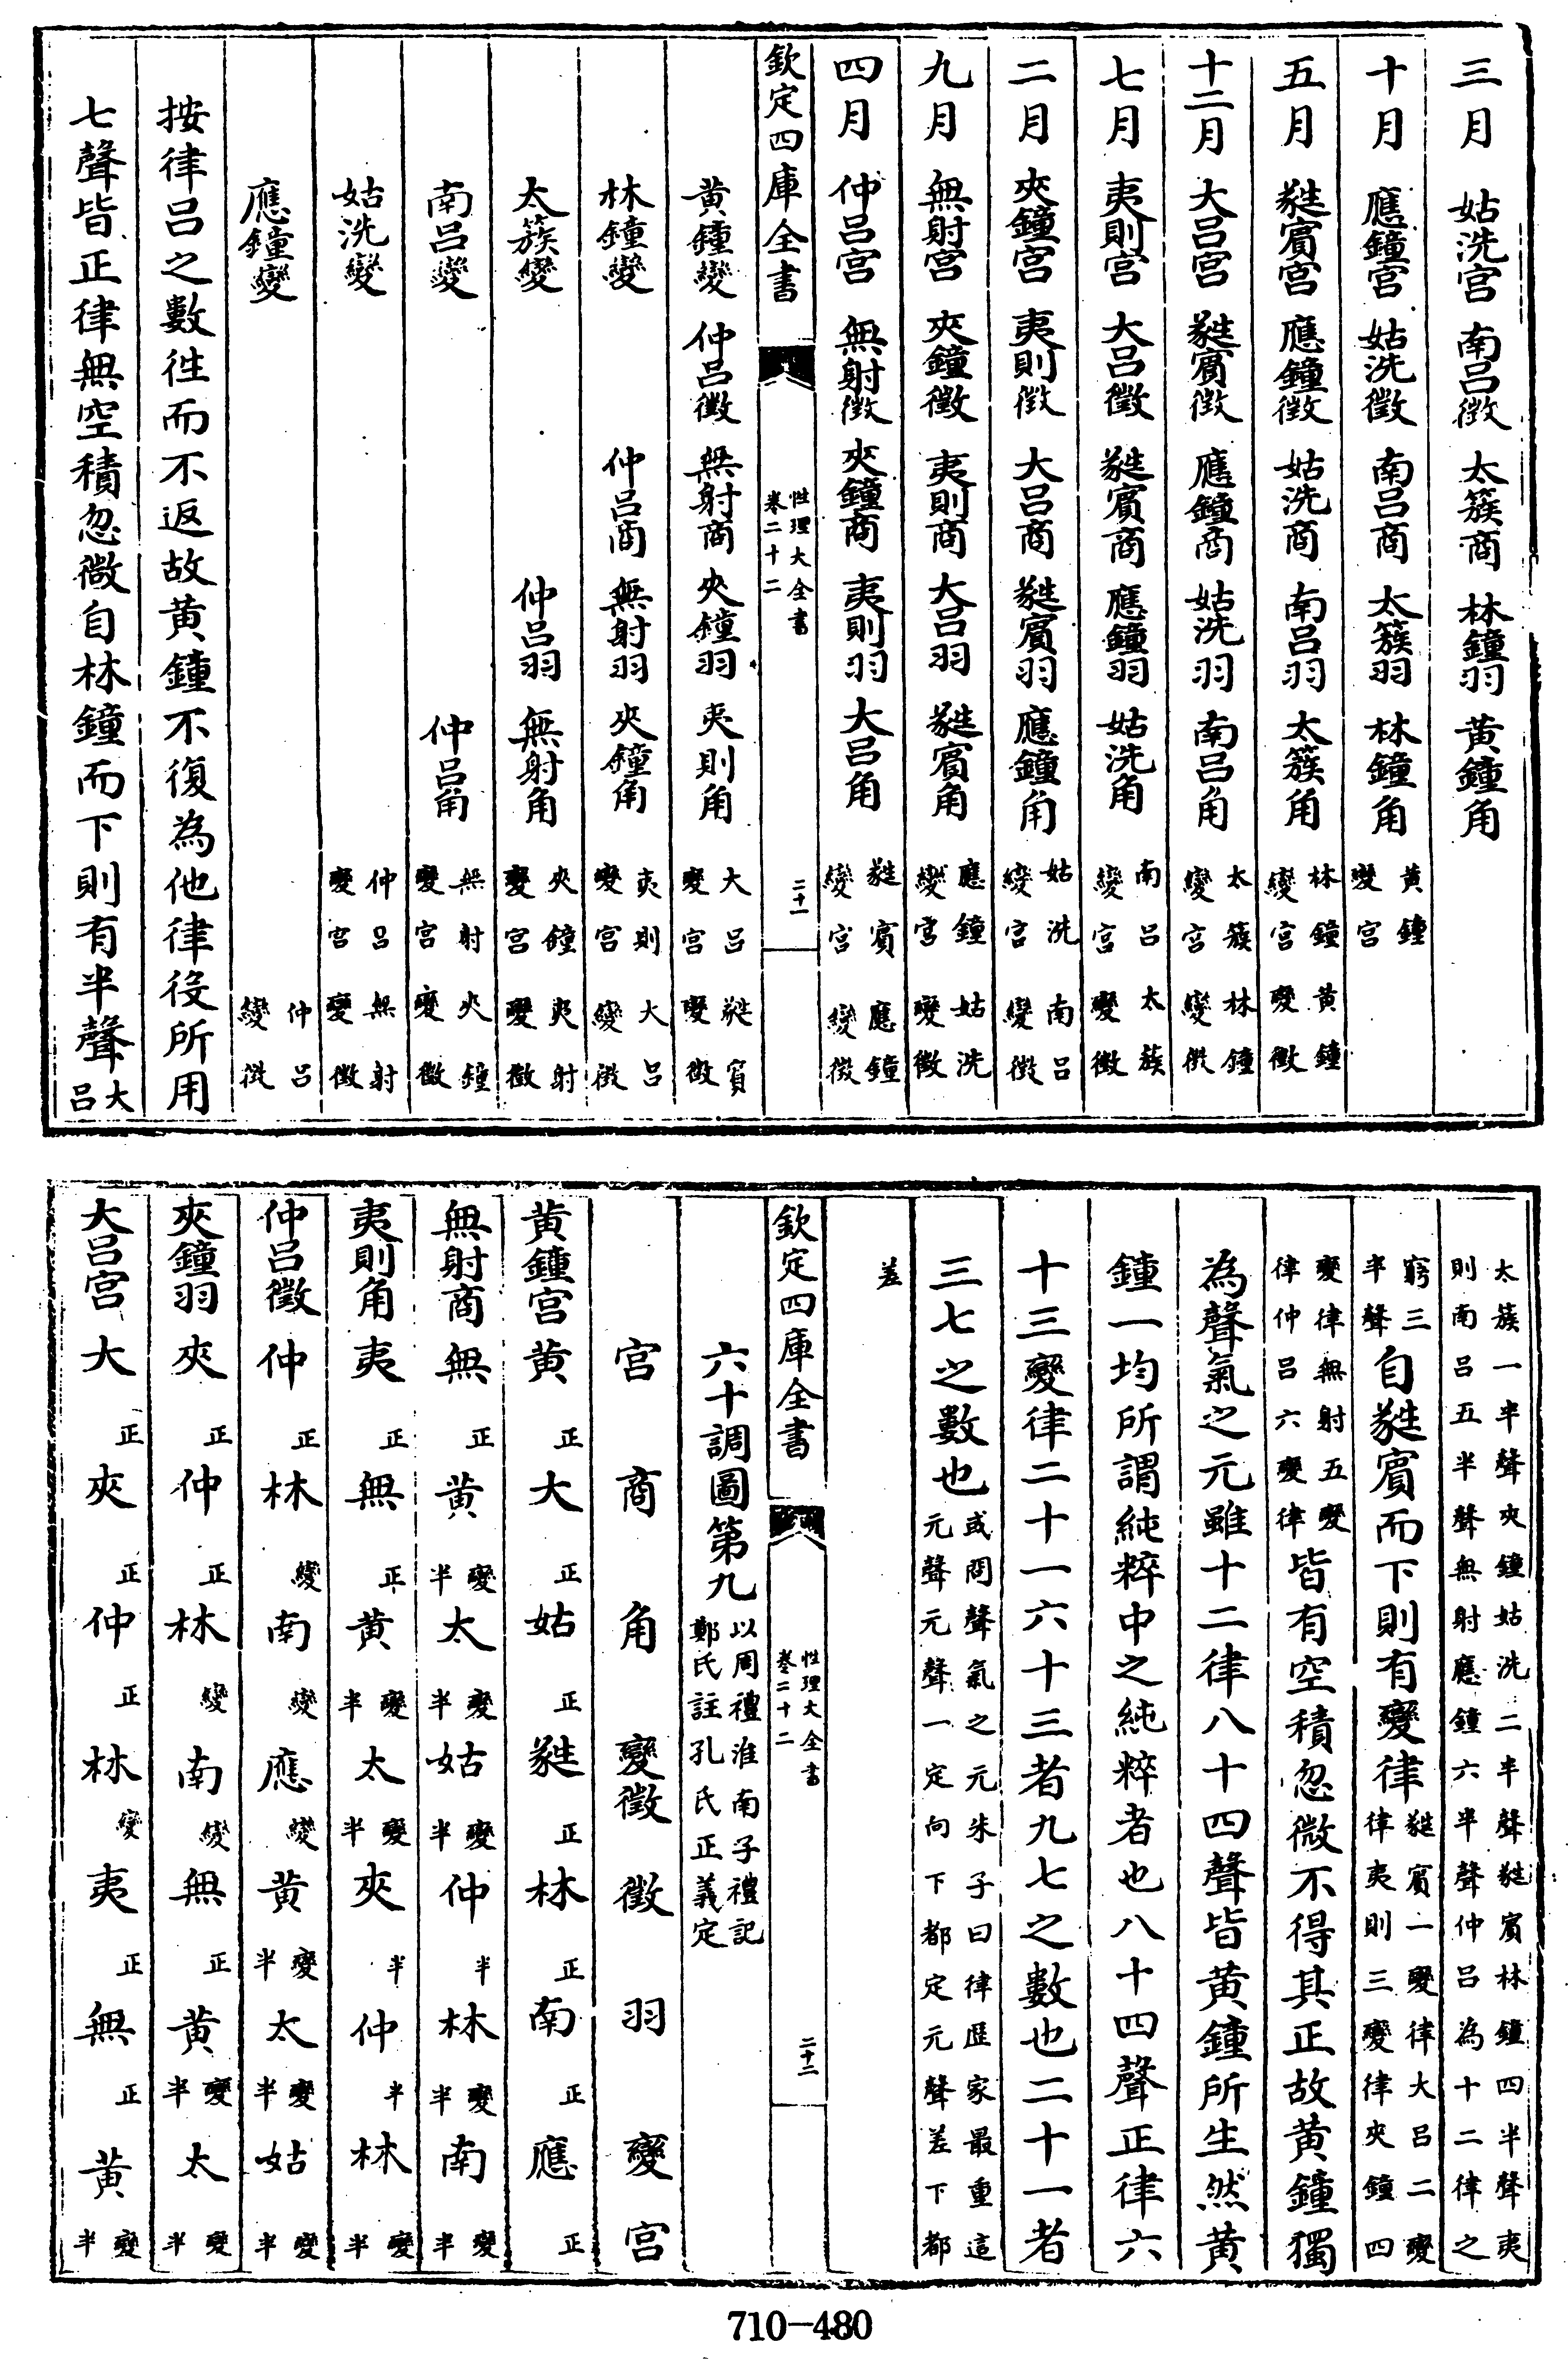 三月 姑洗宮 南呂徵 太簇商 林鐘羽 黃鐘角
十月 應鐘宮 姑洗徵 南呂商 太簇羽 林鐘角 黃鐘變宮
五月 蕤賓宮 應鐘徵 姑洗商 南呂羽 太簇角 林鐘變宮 黃鐘變徵
十二月 大呂宮 蕤賓徵 應鐘商 姑洗羽 南呂角 太簇變宮 林鐘變徵
七月 夷則宮 大呂徵 蕤賓商 應鐘羽 姑洗角 南呂變宮 太簇變徵
二月 夾鐘宮 夷則徵 大呂商 蕤賓羽 應鐘角 姑洗變宮 南呂變徵
九月 無射宮 夾鐘徵 夷則商 大呂羽 蕤賓角 應鐘變宮 姑洗變徵
四月 仲呂宮 無射徵 夾鐘商 夷則羽 大呂角 蕤賓變宮 應鐘變徵
欽定四庫全書 性理大全書卷二十二 二十一
黃鐘變 仲呂徵 無射商 夾鐘羽 夷則角 大呂變宮 蕤賓變徵
林鐘變 仲呂商 無射羽 夾鐘角 夷則變宮 大呂變徵
太簇變 仲呂羽 無射角 夾鐘變宮 夷射變徵
南呂變 仲呂角 無射變宮 夾鐘變徵
姑洗變 仲呂變宮 無射變徵
應鐘變 仲呂變徵
按律呂之數徃而不返故黃鐘不復為他律役所用
七聲皆正律無空積忽微自林鐘而下則有半聲大呂
太簇一半聲夾鐘姑洗二半聲蕤賓林鐘四半聲夷則南呂五半聲無射應鐘六半聲仲呂為十二律之
窮三半聲自蕤賓而下則有變律蕤賓一變律大呂二變律夷則三變律夾鐘四
變律無射五變律仲呂六變律皆有空積忽微不得其正故黃鐘獨
為聲氣之元雖十二律八十四聲皆黃鐘所生然黃
鐘一均所謂純粹中之純粹者也八十四聲正律六
十三變律二十一六十三者九七之數也二十一者
三七之數也或問聲氣之元朱子曰律歷家最重這元聲元聲一定向下都定元聲差下都
差
欽定四庫全書 性理大全書卷二十二 二十二
六十調圖第九以周禮淮南子禮記鄭氏註孔氏正義定
宮 商 角 變徵 徵 羽 變宮
黃鐘宮 黃正 大正 姑正 蕤正 林正 南正 應正
無射商 無正 黃變半 太變半 姑變半 仲半 林變半 南變半
夷則角 夷正 無正 黃變半 太變半 夾半 仲半 林變半
仲呂徵 仲正 林變 南變 應變 黃變半 太變半 姑變半
夾鐘羽 夾正 仲正 林變 南變 無正 黃變半 太變半
大呂宮 大正 夾正 仲正 林變 夷正 無正 黃變半
710-480